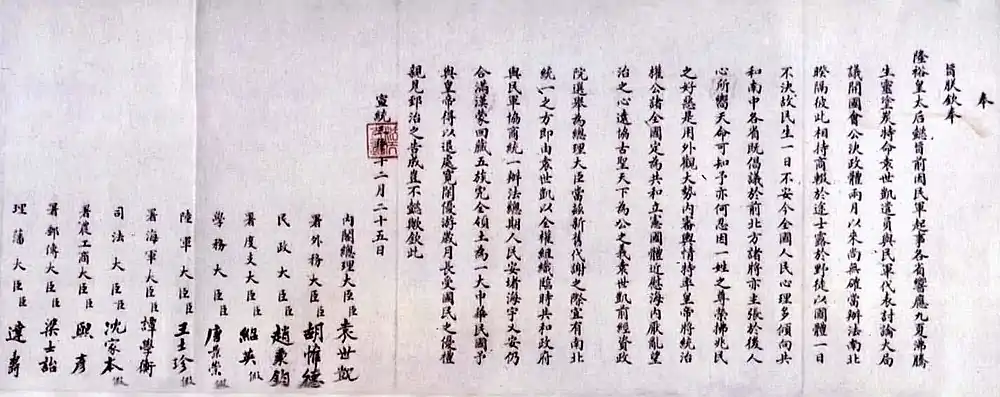 奉
旨朕欽奉
隆裕皇太后懿旨前因民軍起事各省響應九夏沸騰
生靈塗炭特命袁世凱遣員與民軍代表討論大局
議開國會公決政體兩月以來尚無確當辦法南北
暌隔彼此相持商輟於途士露於野徒以國體一日
不決故民生一日不安今全國人民心理多傾向共
和南中各省既倡議於前北方諸將亦主張於後人
心所嚮天命可知予亦何忍因一姓之尊榮拂兆民
之好惡是用外觀大勢內審輿情特率皇帝將統治
權公諸全國定為共和立憲國體近慰海內厭亂望
治之心遠協古聖天下為公之義袁世凱前經資政
院選舉為總理大臣當茲新舊代謝之際宜有南北
統一之方即由袁世凱以全權組織臨時共和政府
與民軍協商統一辦法總期人民安堵海宇乂安仍
合滿漢蒙回藏五族完全領土為一大中華民國予
與皇帝得以退處寬閒優游歲月長受國民之優禮
親見郅治之告成豈不懿歟欽此
宣統年十二月二十五日
內閣總理大臣臣袁世凱
署外務大臣臣胡惟德
民政大臣臣趙秉鈞
署度支大臣臣紹英假
學務大臣臣唐景崇假
陸軍大臣臣王士珍假
署海軍大臣臣譚學衡
司法大臣臣沈家本假
署農工商大臣臣熙彥
署郵傳大臣臣梁士詒
理藩大臣臣達壽